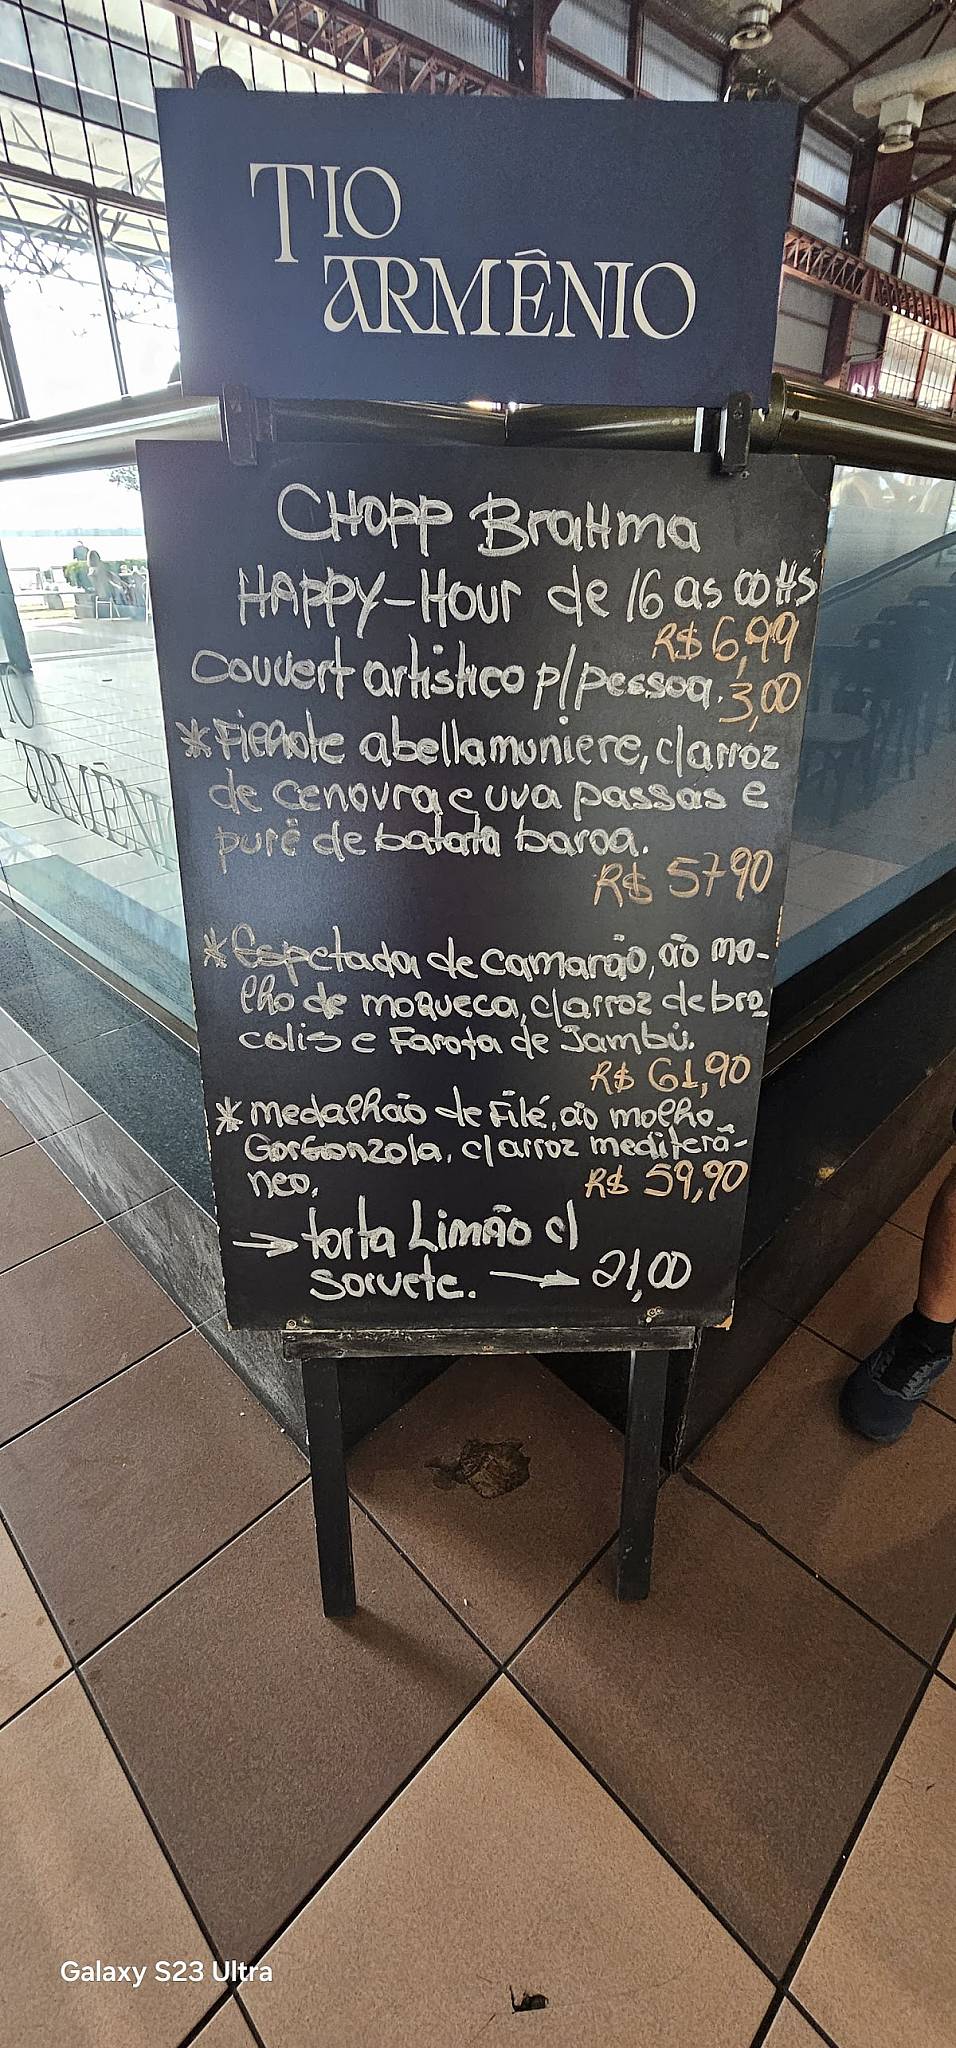 TIO
ARMÊNIO
CHOPP BraHma
HAPPY-Hour de 16 as 00 HS
R$ 6,99
couvert artistico p/pessoa. 3,00
*Filhote abellamuniere, c/arroz
de cenoura e uva passas e
purê de batata baroa.
R$ 5790
*Espetada de camarão, ao mo-
lho de moqueca, c/arroz de bro
colis e Farofa de Jambú.
R$ 61,90
*medalhão de Filé, ao molho
Gorgonzola, c/arroz mediterâ-
neo. R$ 59,90
→ torta Limão c/
sorvete. → 21,00
Galaxy S23 Ultra